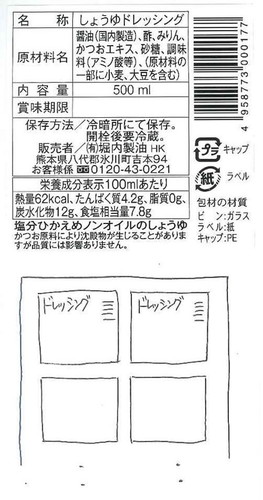 名 称 しょうゆドレッシング
原材料名 醤油(国内製造)、酢、みりん、
かつおエキス、砂糖、調味
料(アミノ酸等)、(原材料の
一部に小麦、大豆を含む)
内 容 量 500 ml
賞味期限
保存方法／冷暗所にて保存。
開栓後要冷蔵。
販売者／(有)堀内製油 HK
熊本県八代郡氷川町吉本94
お客様係 ☎ 0120-43-0221
栄養成分表示100mlあたり
熱量62kcal、たんぱく質4.2g、脂質0g、
炭水化物12g、食塩相当量7.8g
塩分ひかえめノンオイルのしょうゆ
かつお原料により沈殿物が生じることがありま
すが品質には影響ありません。
4 958773 000177
プラ キャップ
紙 ラベル
包材の材質
ビン:ガラス
ラベル:紙
キャップ:PE
ドレッシング
ドレッシング